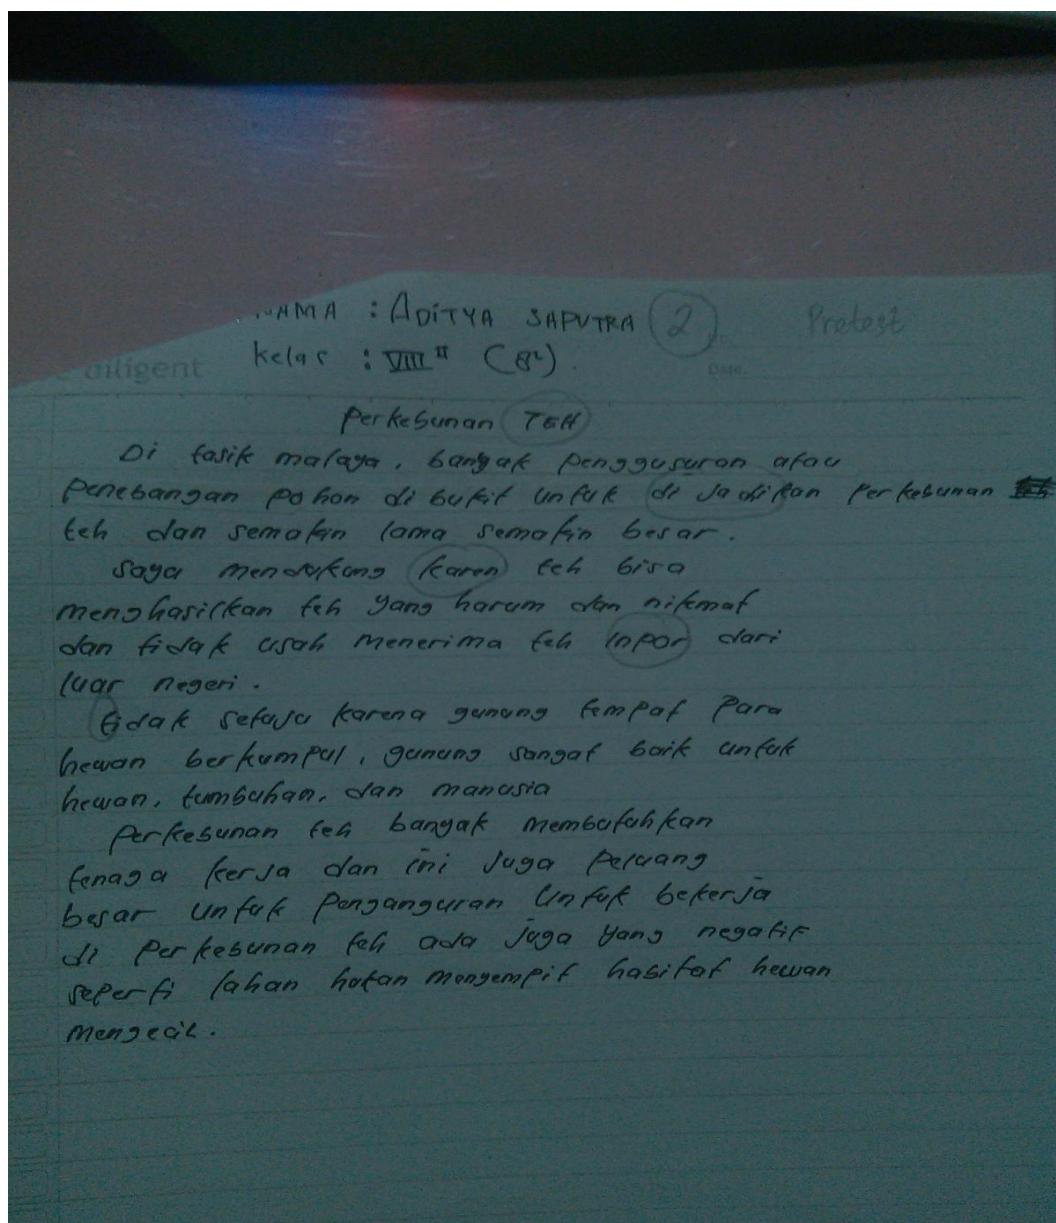 NAMA : ADiTYA SAPUTRA 2 Pretest
diligent kelas : VIII II (8²).
Date.
Perkebunan TEH
Di tasik malaya, banyak penggusuran atau
penebangan pohon di bukit untuk di jadikan perkebunan
teh dan semakin lama semakin besar.
saya mendukung karen teh bisa
menghasilkan teh yang harum dan nikmat
dan tidak usah menerima teh inpor dari
luar negeri.
tidak setuju karena gunung tempat para
hewan berkumpul, gunung sangat baik untuk
hewan, tumbuhan, dan manusia
perkebunan teh banyak membutuhkan
tenaga kerja dan ini juga peluang
besar untuk penganguran untuk bekerja
di perkebunan teh ada juga yang negatif
seperti lahan hutan mengempit habitat hewan
mengecil.